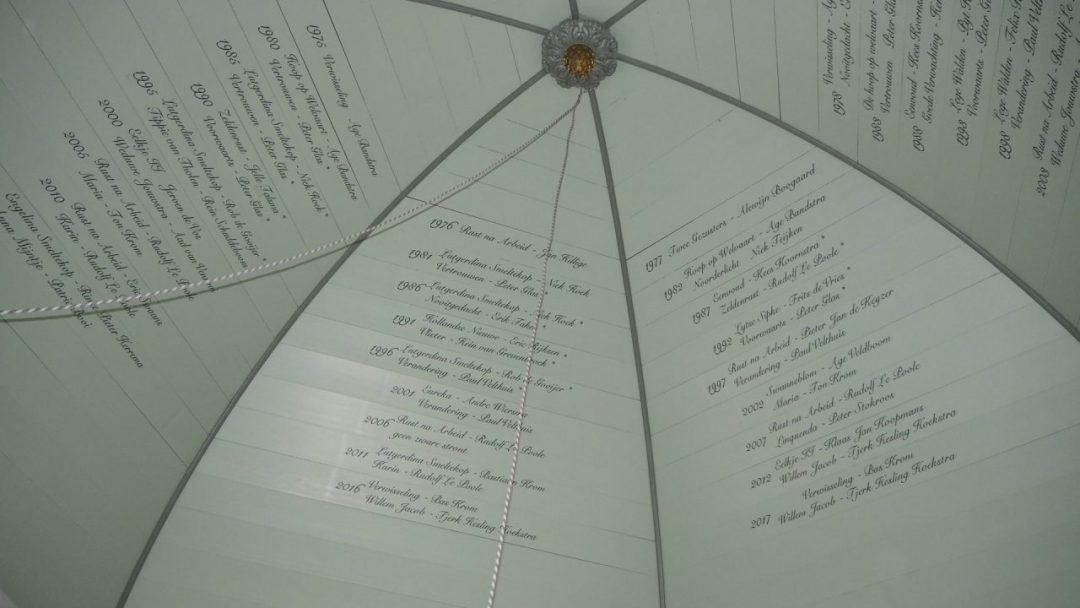 1975 Verwisseling - Age Bandstra
1980 Hoop op Welvaart - Age Bandstra
Vertrouwen - Peter Glas *
1985 Lutgerdina Smeltekop - Niek Hoek *
Vertrouwen - Peter Glas *
1990 Zeldenrust - Jelle Talsma *
Voorwaarts - Peter Glas *
1995 Lutgerdina Smeltekop - Rob de Gooijer *
Tippie van Tholen - Rein Scheldeboom
2000 Eelkje II - Jeroen de Vos
Weduwe Jouwstra - Aad van Vuuren
2005 Rust na Arbeid - Rudolf Le Poole
Maria - Ton Krom
2010 Rust na Arbeid - Eric
Karin - Rudolf Le Poole
Engelina Smeltekop - Pieter Kerrona
1976 Rust na Arbeid - Jan Hillege
1981 Lutgerdina Smeltekop - Niek Hoek
Vertrouwen - Peter Glas *
1986 Lutgerdina Smeltekop - Niek Hoek *
Nooitgedacht - Erik Takes *
1991 Hollandse Nieuwe - Eric Rijksen *
Vlieter - Hein van Grauenbroek *
1996 Lutgerdina Smeltekop - Rob de Gooijer *
Verandering - Paul Velthuis *
2001 Eureka - Andre Wiersma
Verandering - Paul Velthuis
2006 Rust na Arbeid - Rudolf Le Poole
geen zware stront
2011 Lutgerdina Smeltekop - Bastiaan Krom
Karin - Rudolf Le Poole
2016 Verwisseling - Bas Krom
Willem Jacob - Tjerk Hesling Hoekstra
1977 Twee Gezusters - Alewijn Boogaard
1982 Hoop op Welvaart - Age Bandstra
Noorderlicht - Niek Teijken
1987 Eemvoud - Kees Koornstra *
Zeldenrust - Rudolf Le Poole *
1992 Lytse Sipke - Frits de Vries *
Voorwaarts - Peter Glas *
1997 Rust na Arbeid - Pieter Jan de Keyzer
Verandering - Paul Velthuis
2002 Swanneblom - Age Veldboom
Maria - Ton Krom
2007 Rust na Arbeid - Rudolf Le Poole
Linquenda - Peter Stokroos
2012 Eelkje II - Klaas Jan Koopmans
Willem Jacob - Tjerk Hesling Hoekstra
2017 Verwisseling - Bas Krom
Willem Jacob - Tjerk Hesling Hoekstra
1978 Verwisseling - Age
Nooitgedacht - E
1983 De hoop op welvaart - Age
Vertrouwen - Peter Glas
1988 Eenvoud - Kees Koornstra
Goede Verwachting - Her
1993 Lege Wâlden - Pyt K
Voorwaarts - Peter Glas
1998 Lege Wâlden - Feike
Verandering - Paul Velthuis
2003 Rust na Arbeid - Rudolf Le
Weduwe Jouwstra